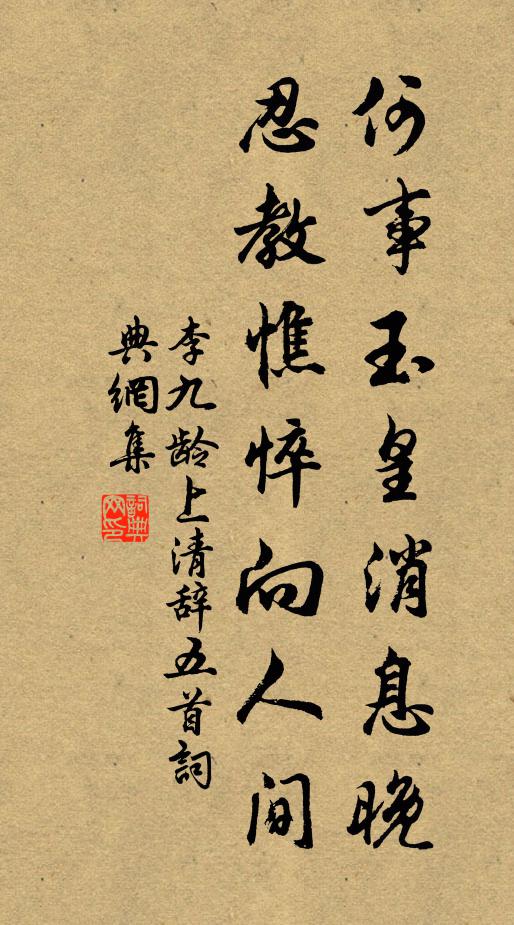 何事玉皇消息晚
忍教憔悴向人间
李九龄上清辞五首詞
典網集
詞典网印